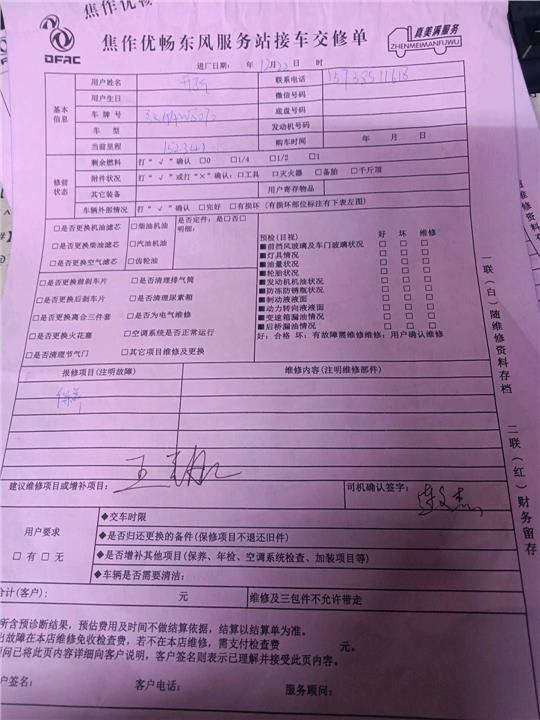 焦作优畅
DFAC
焦作优畅东风服务站接车交修单
真美满服务
ZHENMEIMANFUWU
进厂日期： 年 12月22日 时
基本信息
用户姓名 联系电话
用户生日 微信号码
车牌号 底盘号码
车型 发动机号码
当前里程 152341 购车时间 年 月 日
修前状态
剩余燃料 打“√”确认 □0 □1/4 □1/2 □1
附件状况 打“√”或打“×”确认：□工具 □灭火器 □备胎 □千斤顶
其它装备 用户寄存物品
车辆外部情况 打“√”确认 □完好 □有损坏（有损坏部位标注有下表左图）
□是否更换机油滤芯 □柴油机油
□是否更换柴油滤芯 □汽油机油
□是否更换空气滤芯 □齿轮油
是否定件：是□否□
明细：
□是否更换前刹车片 □是否清理排气筒
□是否更换后刹车片 □是否清理尿素箱
□是否更换离合三件套 □是否为电气维修
□是否更换火花塞 □空调系统是否正常运行
□是否清理节气门 □其它项目维修及更换
预检(目视) 好 坏 维修
■前挡风玻璃及车门玻璃状况 □ □ □
■灯具情况 □ □ □
■油量状况 □ □ □
■轮胎状况 □ □ □
■发动机机油状况 □ □ □
■防冻防锈瓶状况 □ □ □
■制动液液面 □ □ □
■动力转向液液面 □ □ □
■变速箱漏油情况 □ □ □
■后桥漏油情况 □ □ □
好：合格 坏：有故障需维修维修：用户确认维修
报修项目(注明故障) 维修内容(注明维修部件)
保养
建议维修项目或增补项目： 司机确认签字：
用户要求
□有 □无
◆交车时限
◆是否归还更换的备件(保修项目不退还旧件)
◆是否增补其他项目(保养、年检、空调系统检查、加装项目等)
◆车辆是否需要清洁：
合计(客户)： 元 维修及三包件不允许带走
所含预诊断结果，预估费用及时间不做结算依据，结算以结算单为准。
出故障在本店维修免收检查费，若不在本店维修，需支付检查费 元。
顾问已将此页内容详细向客户说明，客户签名则表示已理解并接受此页内容。
户签名： 客户电话： 服务顾问：
一联（白）随维修资料存档
二联（红）财务留存